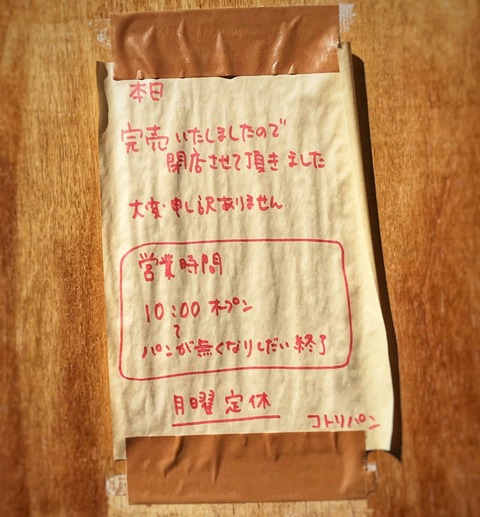 本日
完売いたしましたので
閉店させて頂きました
大変申し訳ありません
営業時間
10:00 オープン
て
パンが無くなりしだい終了
月曜定休
コトリパン